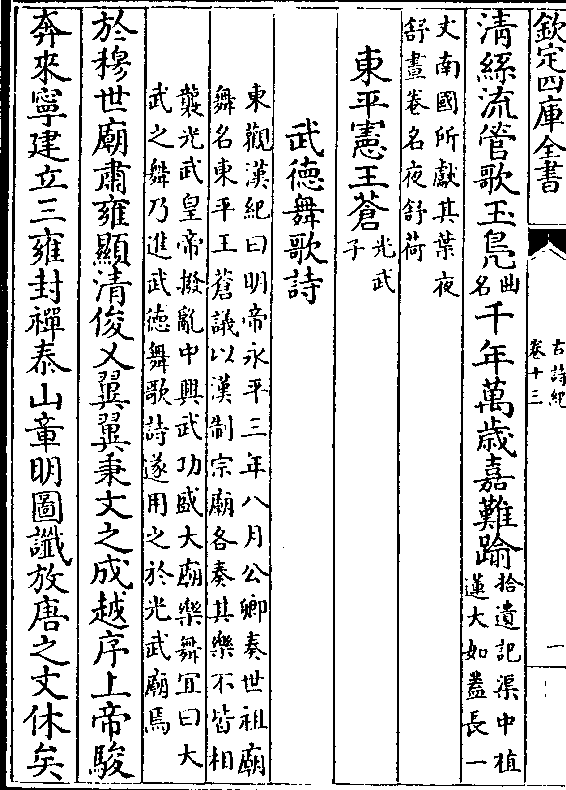 欽定四庫全書
古詩紀
卷十三
一
清絲流管歌玉鳬曲名千年萬歳嘉難踰拾遺記渠中植
蓮大如葢長一
丈南國所獻其葉夜
舒晝卷名夜舒荷
東平憲王蒼光武
子
武德舞歌詩
東觀漢紀曰明帝永平三年八月公卿奏世祖廟
舞名東平王蒼議以漢制宗廟各奏其樂不皆相
襲光武皇帝撥亂中興武功盛大廟樂舞宜曰大
武之舞乃進武德舞歌詩遂用之於光武廟焉
於穆世廟肅雍顯清俊乂翼翼秉文之成越序上帝駿
奔來寧建立三雍封禪泰山章明圖讖放唐之文休矣